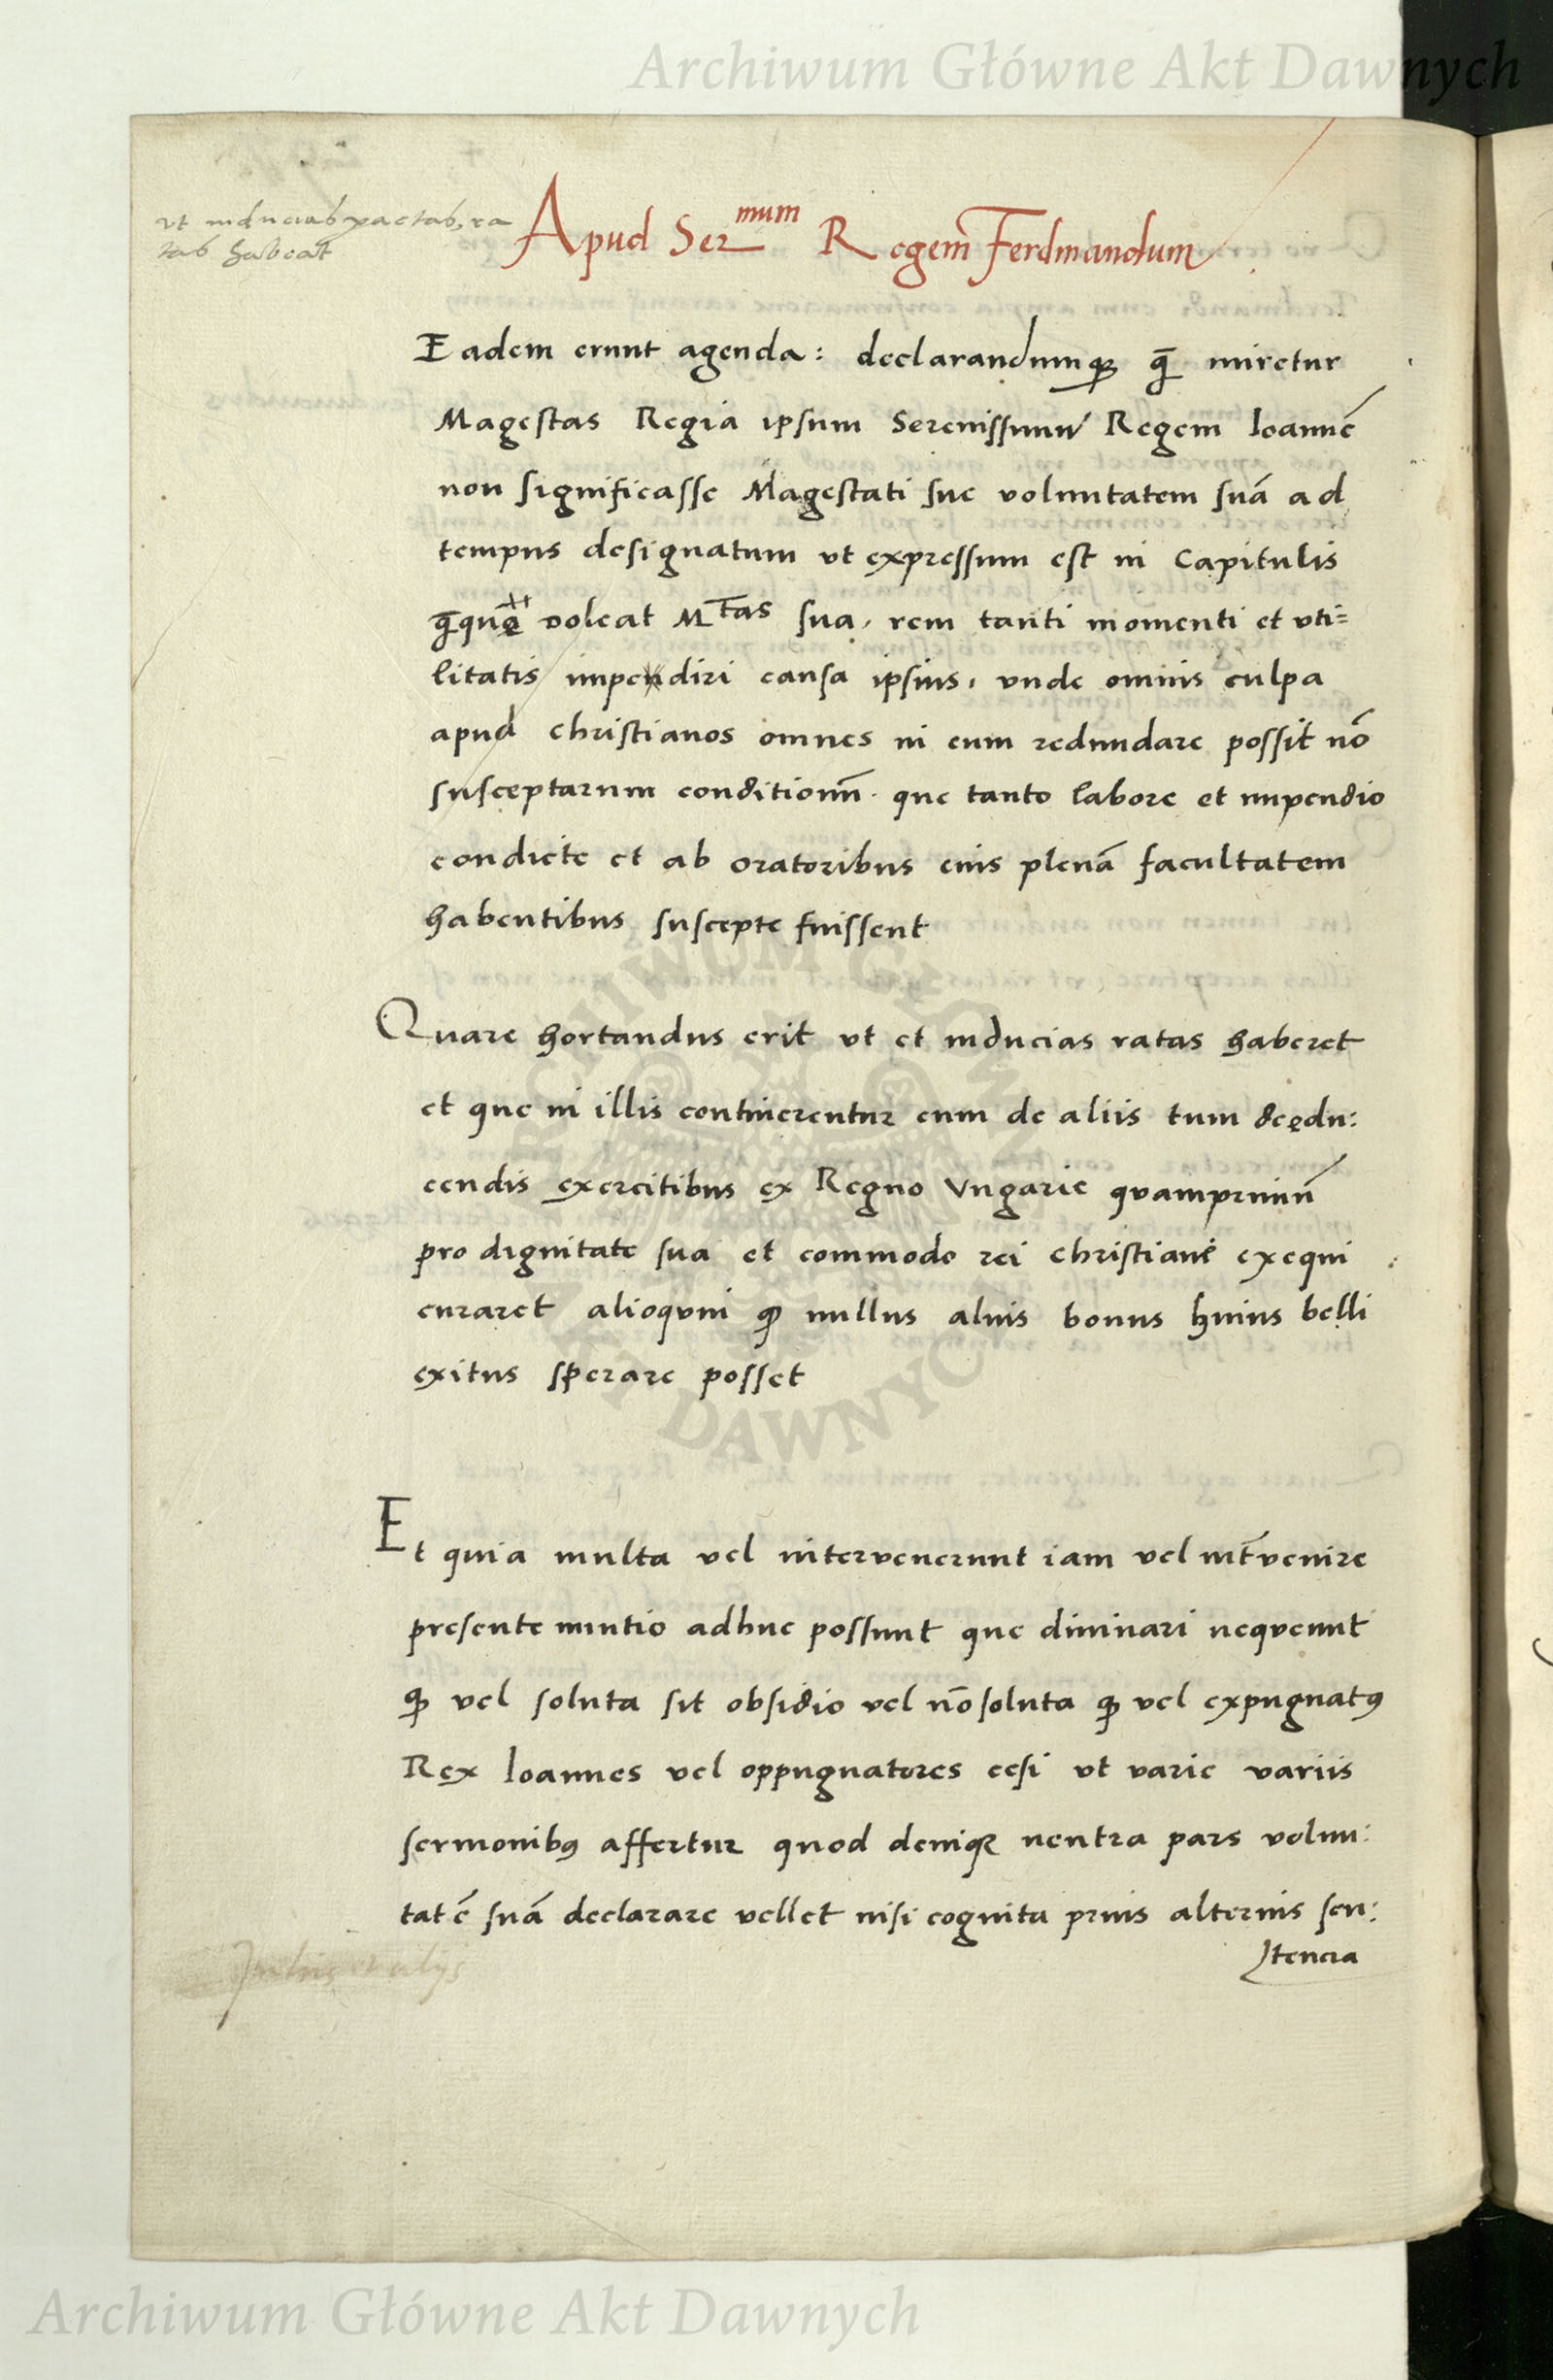 Archiwum Główne Akt Dawnych
ut inducias pactas, ra
tas habeat
Apud Ser^mum Regem̄ Ferdinandum
Eadem erunt agenda: declarandumqꝫ ꝙ̄ miretur
Magestas Regia ipsum Serenissimū Regem Ioannē
non significasse Magestati sue voluntatem suā ad
tempus designatum ut expressum est in Capitulis
doleat M^tas sua, rem tanti momenti et uti=
litatis impediri causa ipsius, unde omnis culpa
apud christianos omnes in eum redundare possit nō
susceptarum conditionū que tanto labore et impendio
condicte et ab oratoribus eius plenā facultatem
habentibus suscepte fuissent
Quare hortandus erit ut et inducias ratas haberet
et que in illis continerentur cum de aliis tum dedu:
cendis exercitibus ex Regno Vngarie quamprimū
pro dignitate sua et commodo rei christiane exequi
curaret alioquin ꝙ nullus alius bonus huius belli
exitus sperare posset
Et quia multa vel intervenerunt iam vel int̄venire
presente nuntio adhuc possunt que divinari nequeunt
ꝙ vel soluta sit obsidio vel nō soluta ꝙ vel expugnatꝯ
Rex Ioannes vel oppugnatores cesi ut varie variis
sermonibꝯ affertur quod deniqꝫ neutra pars volun:
tatē suā declarare vellet nisi cognita prius alterius sen:
tencia
ARCHIWUM GŁÓWNE AKT DAWNYCH
Archiwum Główne Akt Dawnych